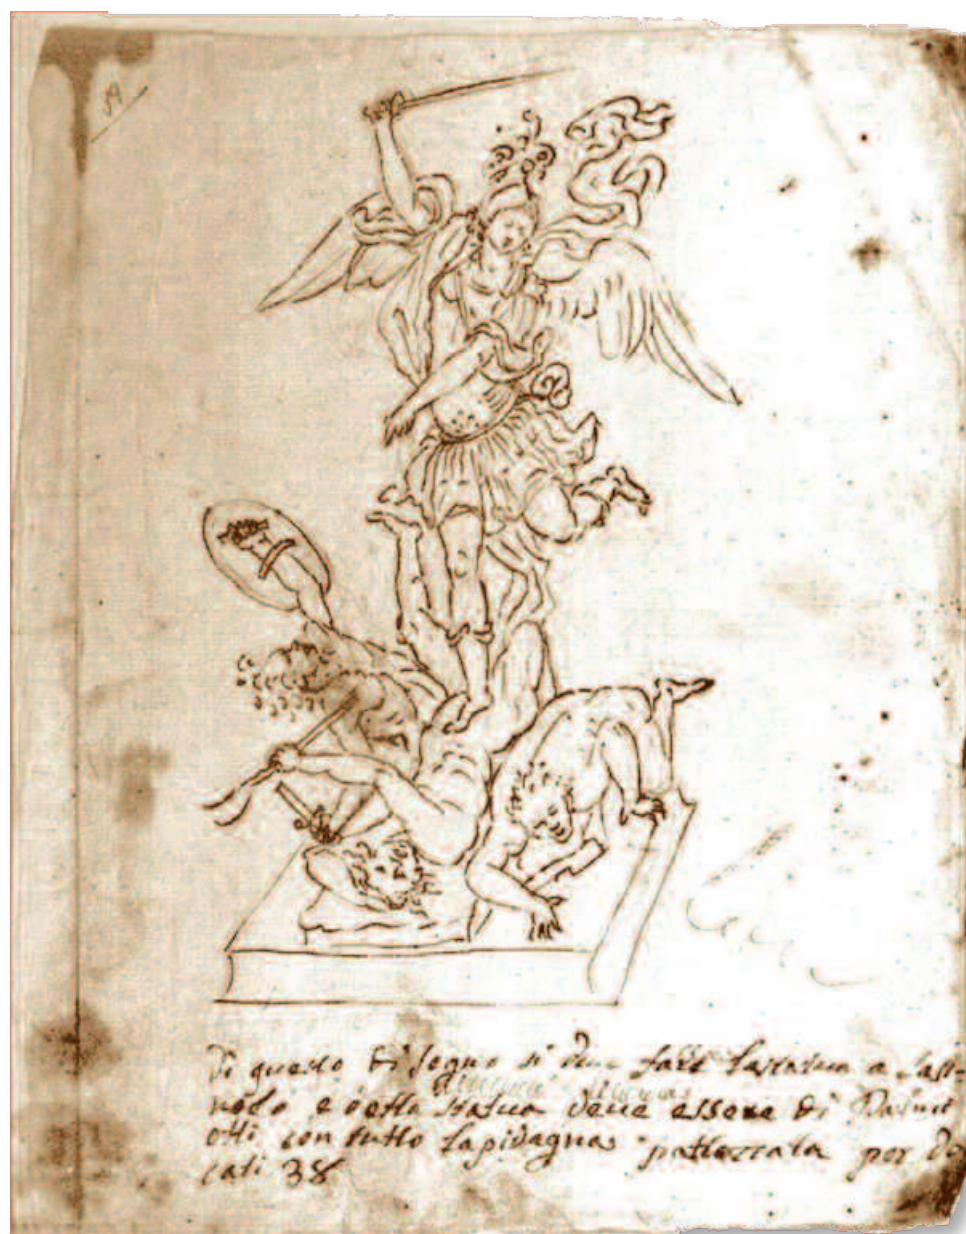 59
Di questo disegno si deve fare la statua a
e detta statua deve essere di Palmi
otti con tutto la pidagna patteggiata per Do
cati 38